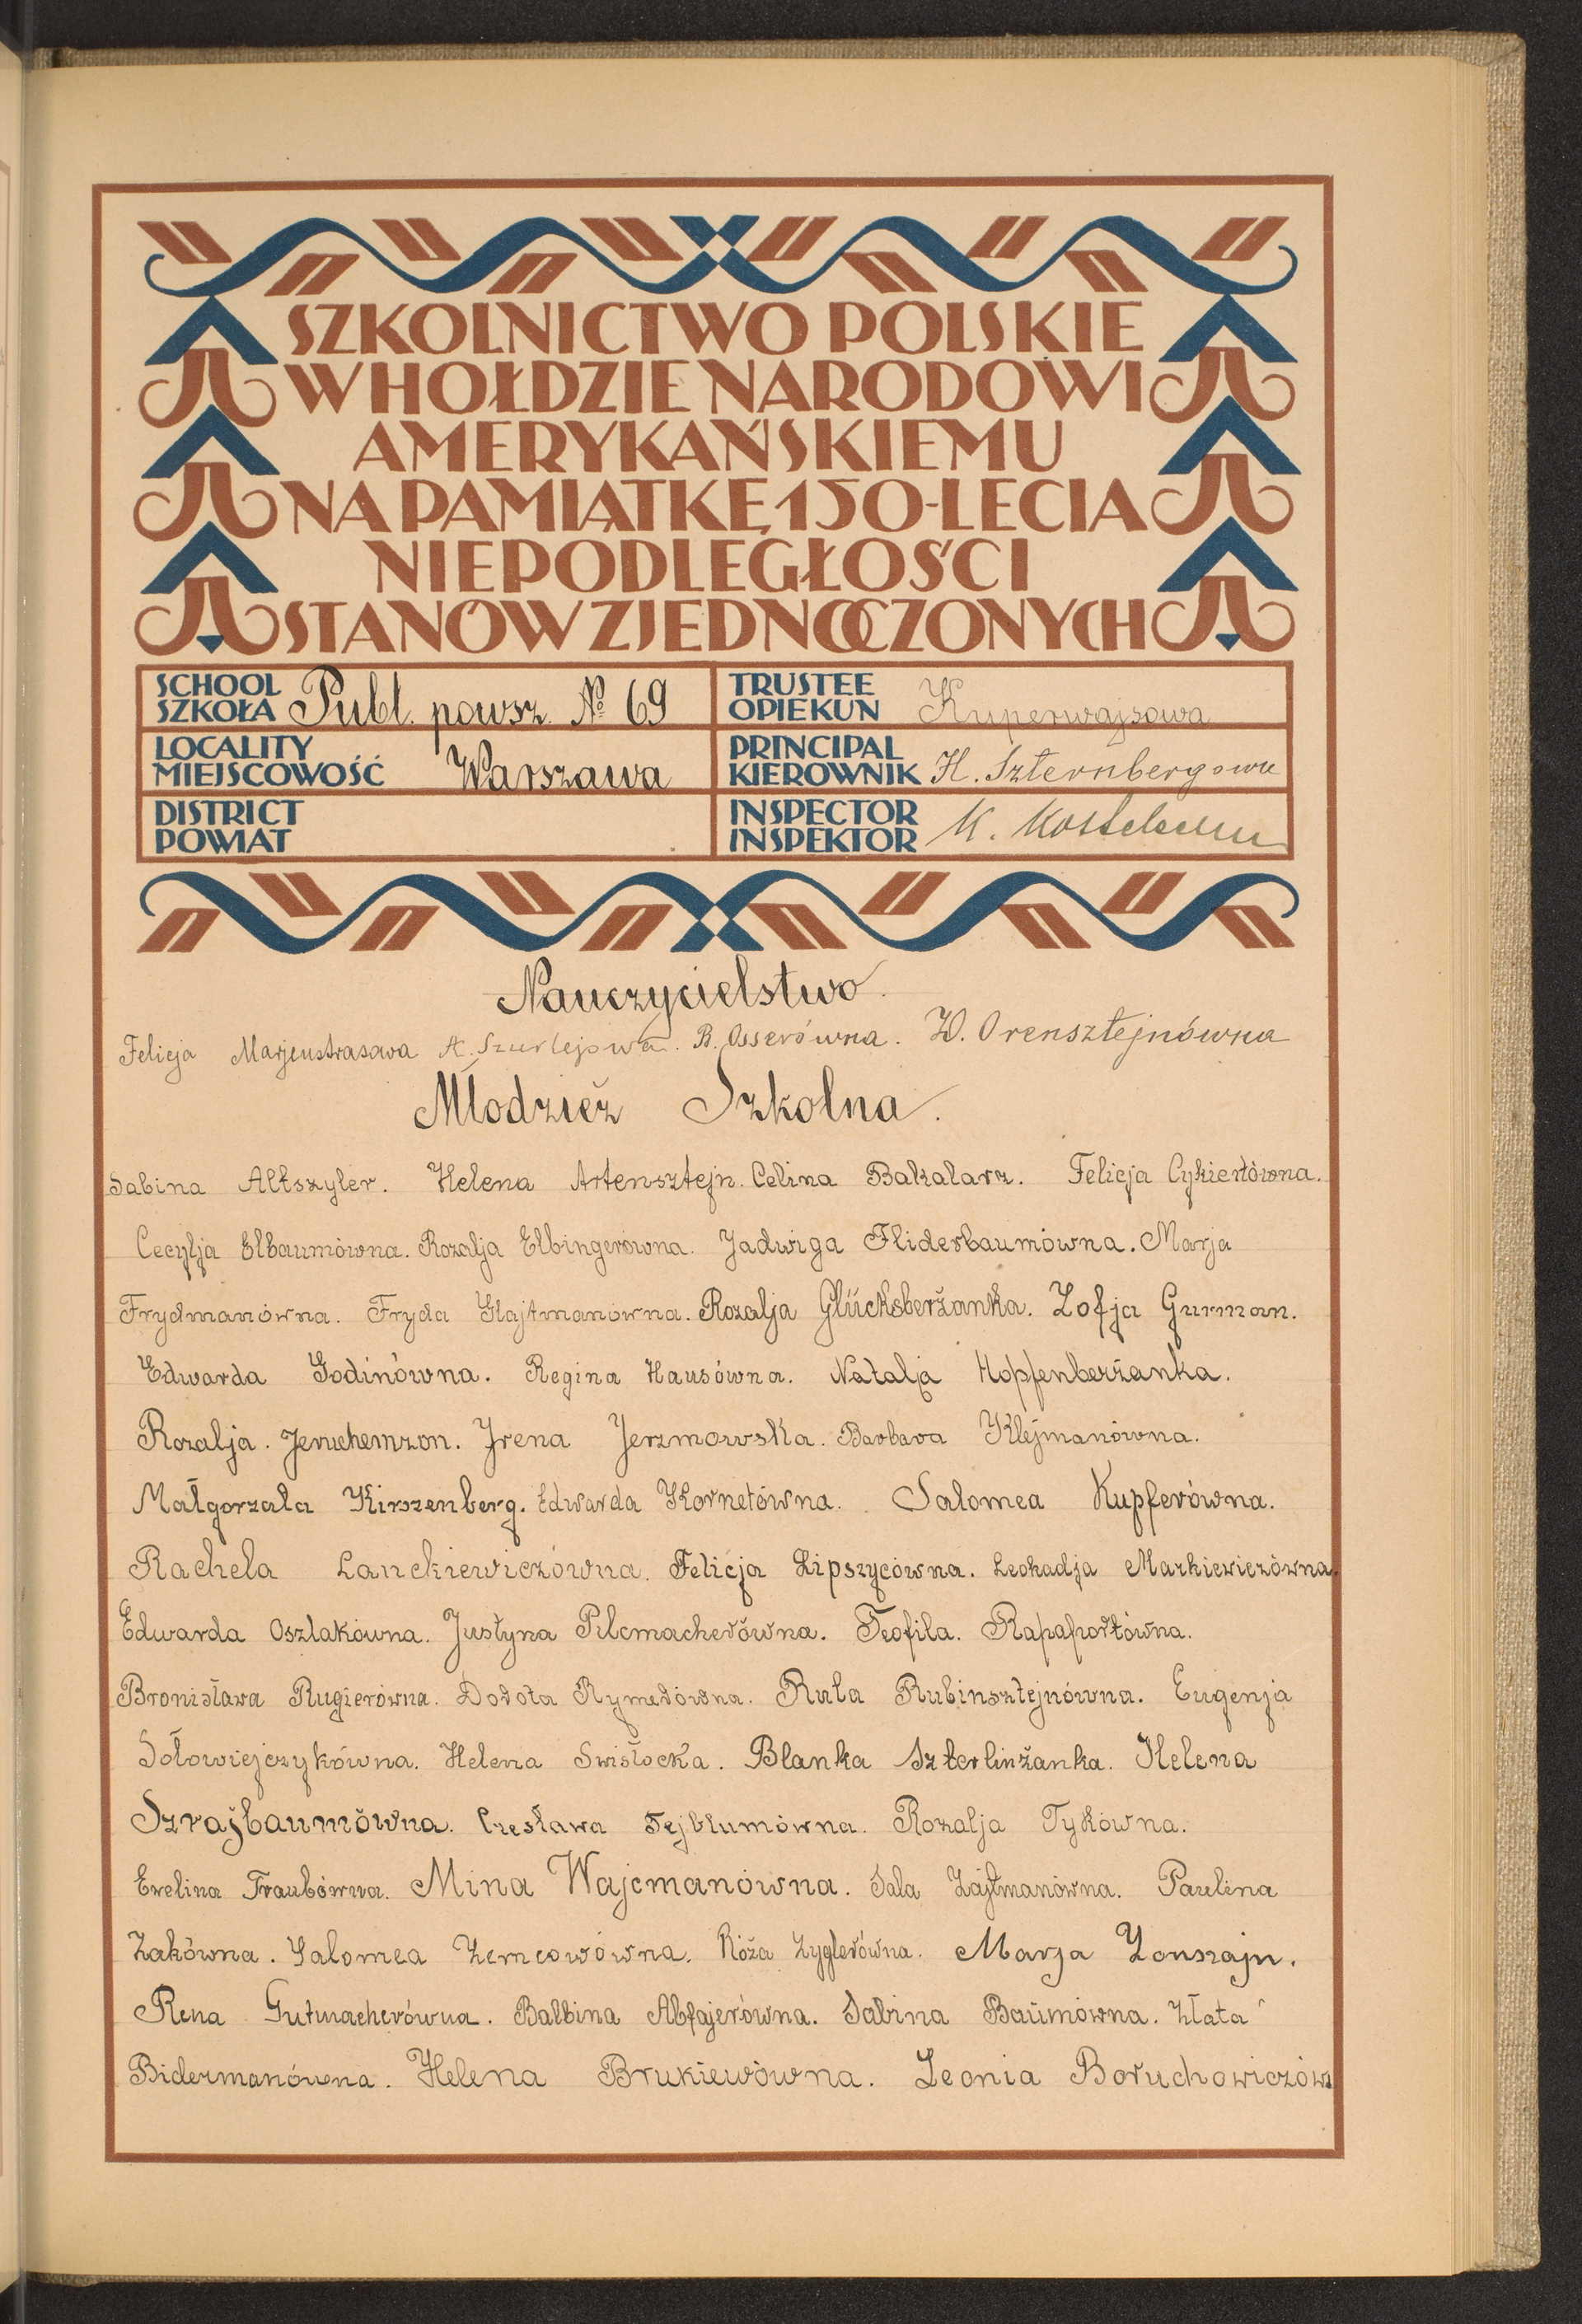 SZKOLNICTWO POLSKIE
W HOŁDZIE NARODOWI
AMERYKAŃSKIEMU
NA PAMIĄTKĘ 150-LECIA
NIEPODLEGŁOŚCI
STANÓW ZJEDNOCZONYCH
SCHOOL
SZKOŁA Publ. powsz. № 69
TRUSTEE
OPIEKUN Kuperwajsowa
LOCALITY
MIEJSCOWOŚĆ Warszawa
PRINCIPAL
KIEROWNIK H. Szternbergowa
DISTRICT
POWIAT
INSPECTOR
INSPEKTOR K.
Nauczycielstwo.
Felicja A. Szurlejowa. R. Osserówna. W. Orensztejnówna
Młodzież Szkolna.
Sabina Altszyler. Helena Artensztejn. Celina Bakalarz. Felicja Cykiertówna.
Cecylja Elbaumówna. Rozalja Elbingerówna. Jadwiga Fliderbaumówna. Marja
Frydmanówna. Fryda Glajtmanówna. Rozalja Glücksberżanka. Zofja Gurman.
Edwarda Godinówna. Regina Hausówna. Natalja Hopfenberżanka.
Rozalja. Jeruchemzon. Irena Jerzmowska. Barbara Klejmanówna.
Małgorzata Kirszenberg. Edwarda Kornetówna. Salomea Kupferówna.
Rachela Lanckiewiczówna. Felicja Lipszycówna. Leokadja Markiewiczówna.
Edwarda Oszlakówna. Justyna Pilcmacherówna. Teofila. Rapaportówna.
Bronisława Rugierówna. Dorota Rymerówna. Ruta Rubinsztejnówna. Eugenja
Sołowiejczykówna. Helena Swisłocka. Blanka Szterlinżanka. Helena
Szrajbaumówna. Czesława Tejblumówna. Rozalja Tykówna.
Ewelina Traubówna. Mina Wajcmanówna. Sala Zajtmanówna. Paulina
Żakówna. Salomea Zemcowówna. Róża Zyglerówna. Marja Zonszajn.
Rena Gutmacherówna. Balbina Abfajerówna. Sabina Baumówna. Złata
Bidermanówna. Helena Brukiewówna. Leonia Boruchowiczów